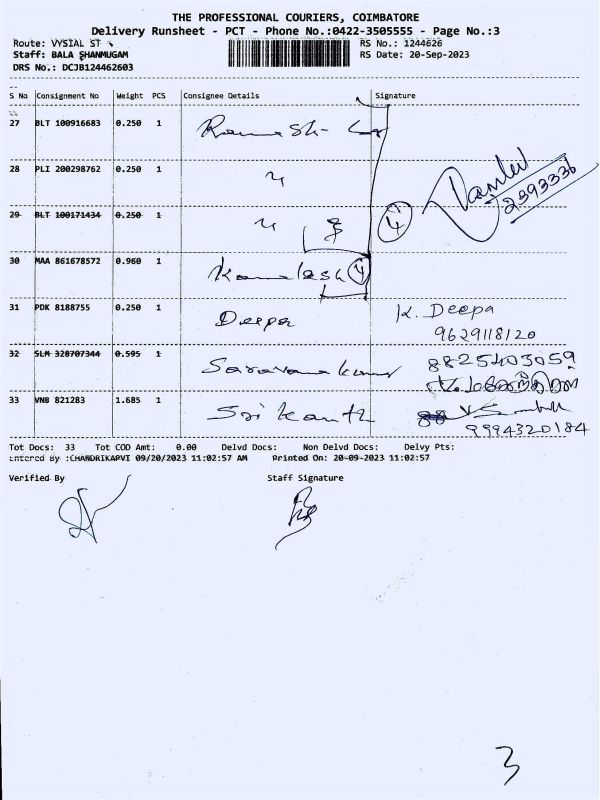 THE PROFESSIONAL COURIERS, COIMBATORE
Delivery Runsheet - PCT - Phone No.:0422-3505555 - Page No.:3
Route: VYSIAL ST
Staff: BALA SHANMUGAM
DRS No.: DCJB124462603
RS No.: 1244626
RS Date: 20-Sep-2023
S No Consignment No Weight PCS Consignee Details Signature
27 BLT 100916683 0.250 1 Ramesh-
28 PLI 200298762 0.250 1 "
2393336
29 BLT 100171434 0.250 1 " 4
30 MAA 861678572 0.960 1 Kamalesh 4
31 PDK 8188755 0.250 1 Deepa K. Deepa
9629118120
32 SLM 328707344 0.595 1 Saravanakumar 8825403059
33 VNB 821283 1.685 1 Srikanth
9994320184
Tot Docs: 33 Tot COD Amt: 0.00 Delvd Docs: Non Delvd Docs: Delvy Pts:
Entered By :CHANDRIKAPVI 09/20/2023 11:02:57 AM Printed On: 20-09-2023 11:02:57
Verified By Staff Signature
3